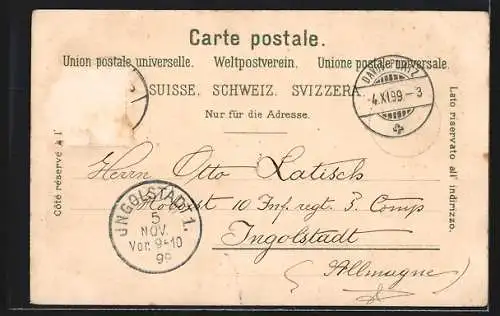 Carte postale.
Union postale universelle. Weltpostverein. Unione postale universale.
SUISSE. SCHWEIZ. SVIZZERA.
Nur für die Adresse.
Côté réservé à l'
Lato riservato all' indirizzo.
-4.XI.99.-3
Herrn Otto Latisch
10 Inf. regt. 3. Comp
Ingolstadt
(Allmagne)
INGOLSTADT 1.
5
NOV.
Vor. 9-10
99